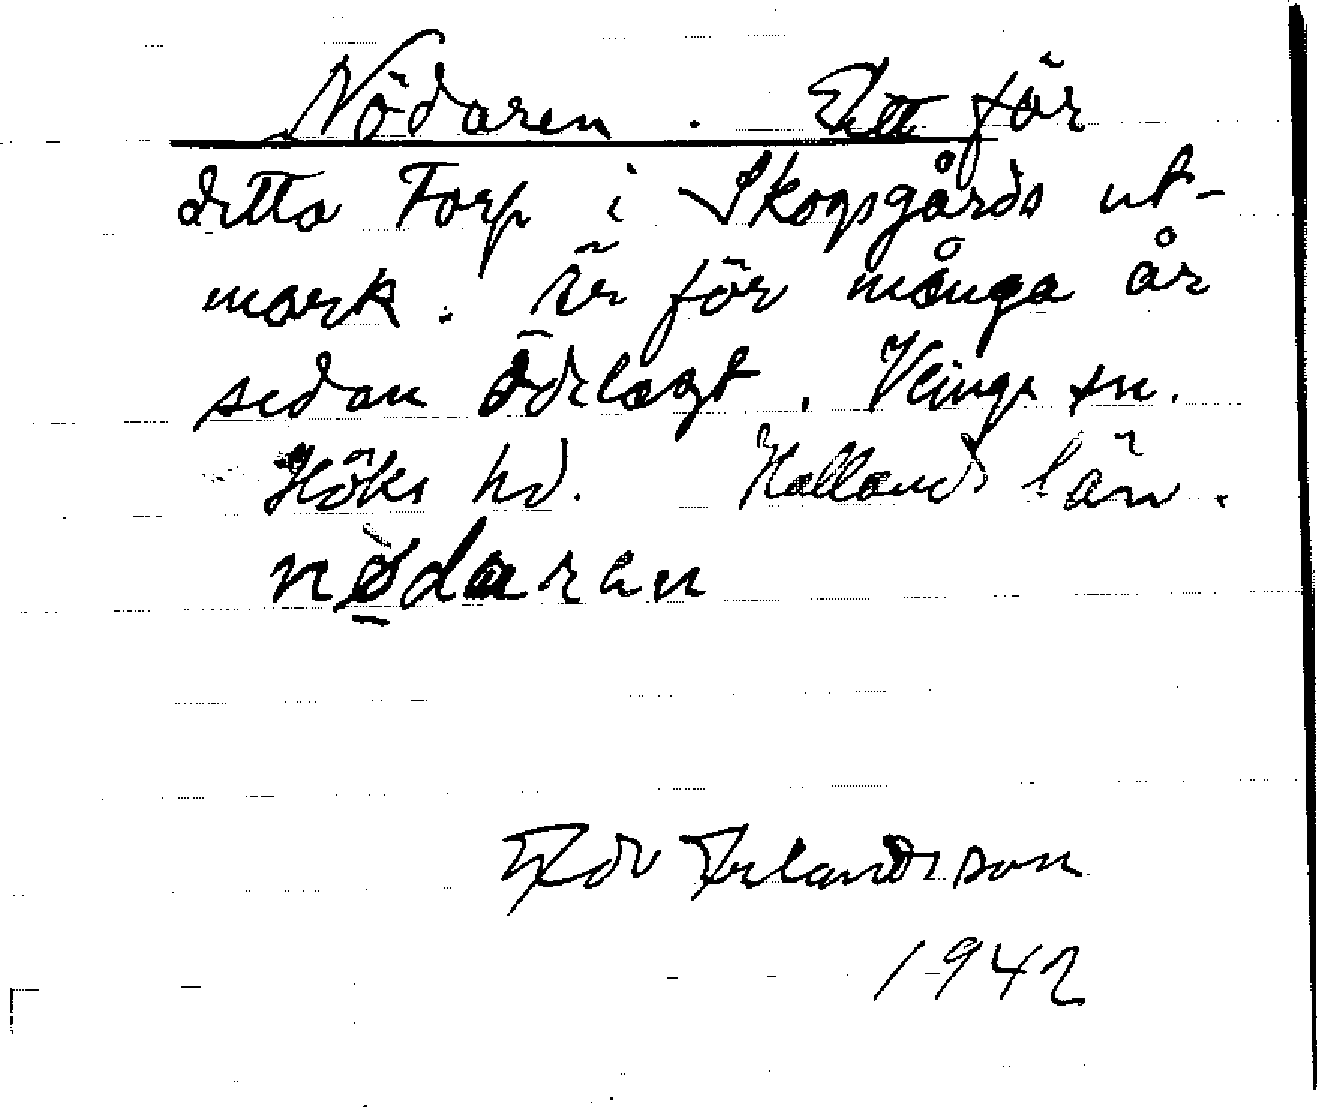 Nödaren. Ett för
detta Torp i Skogsgårds ut-
mark. Är för många år
sedan ödelagt. Veinge sn.
Höks hd. Hallands län.
nödaren
Edv Erlandsson
1942